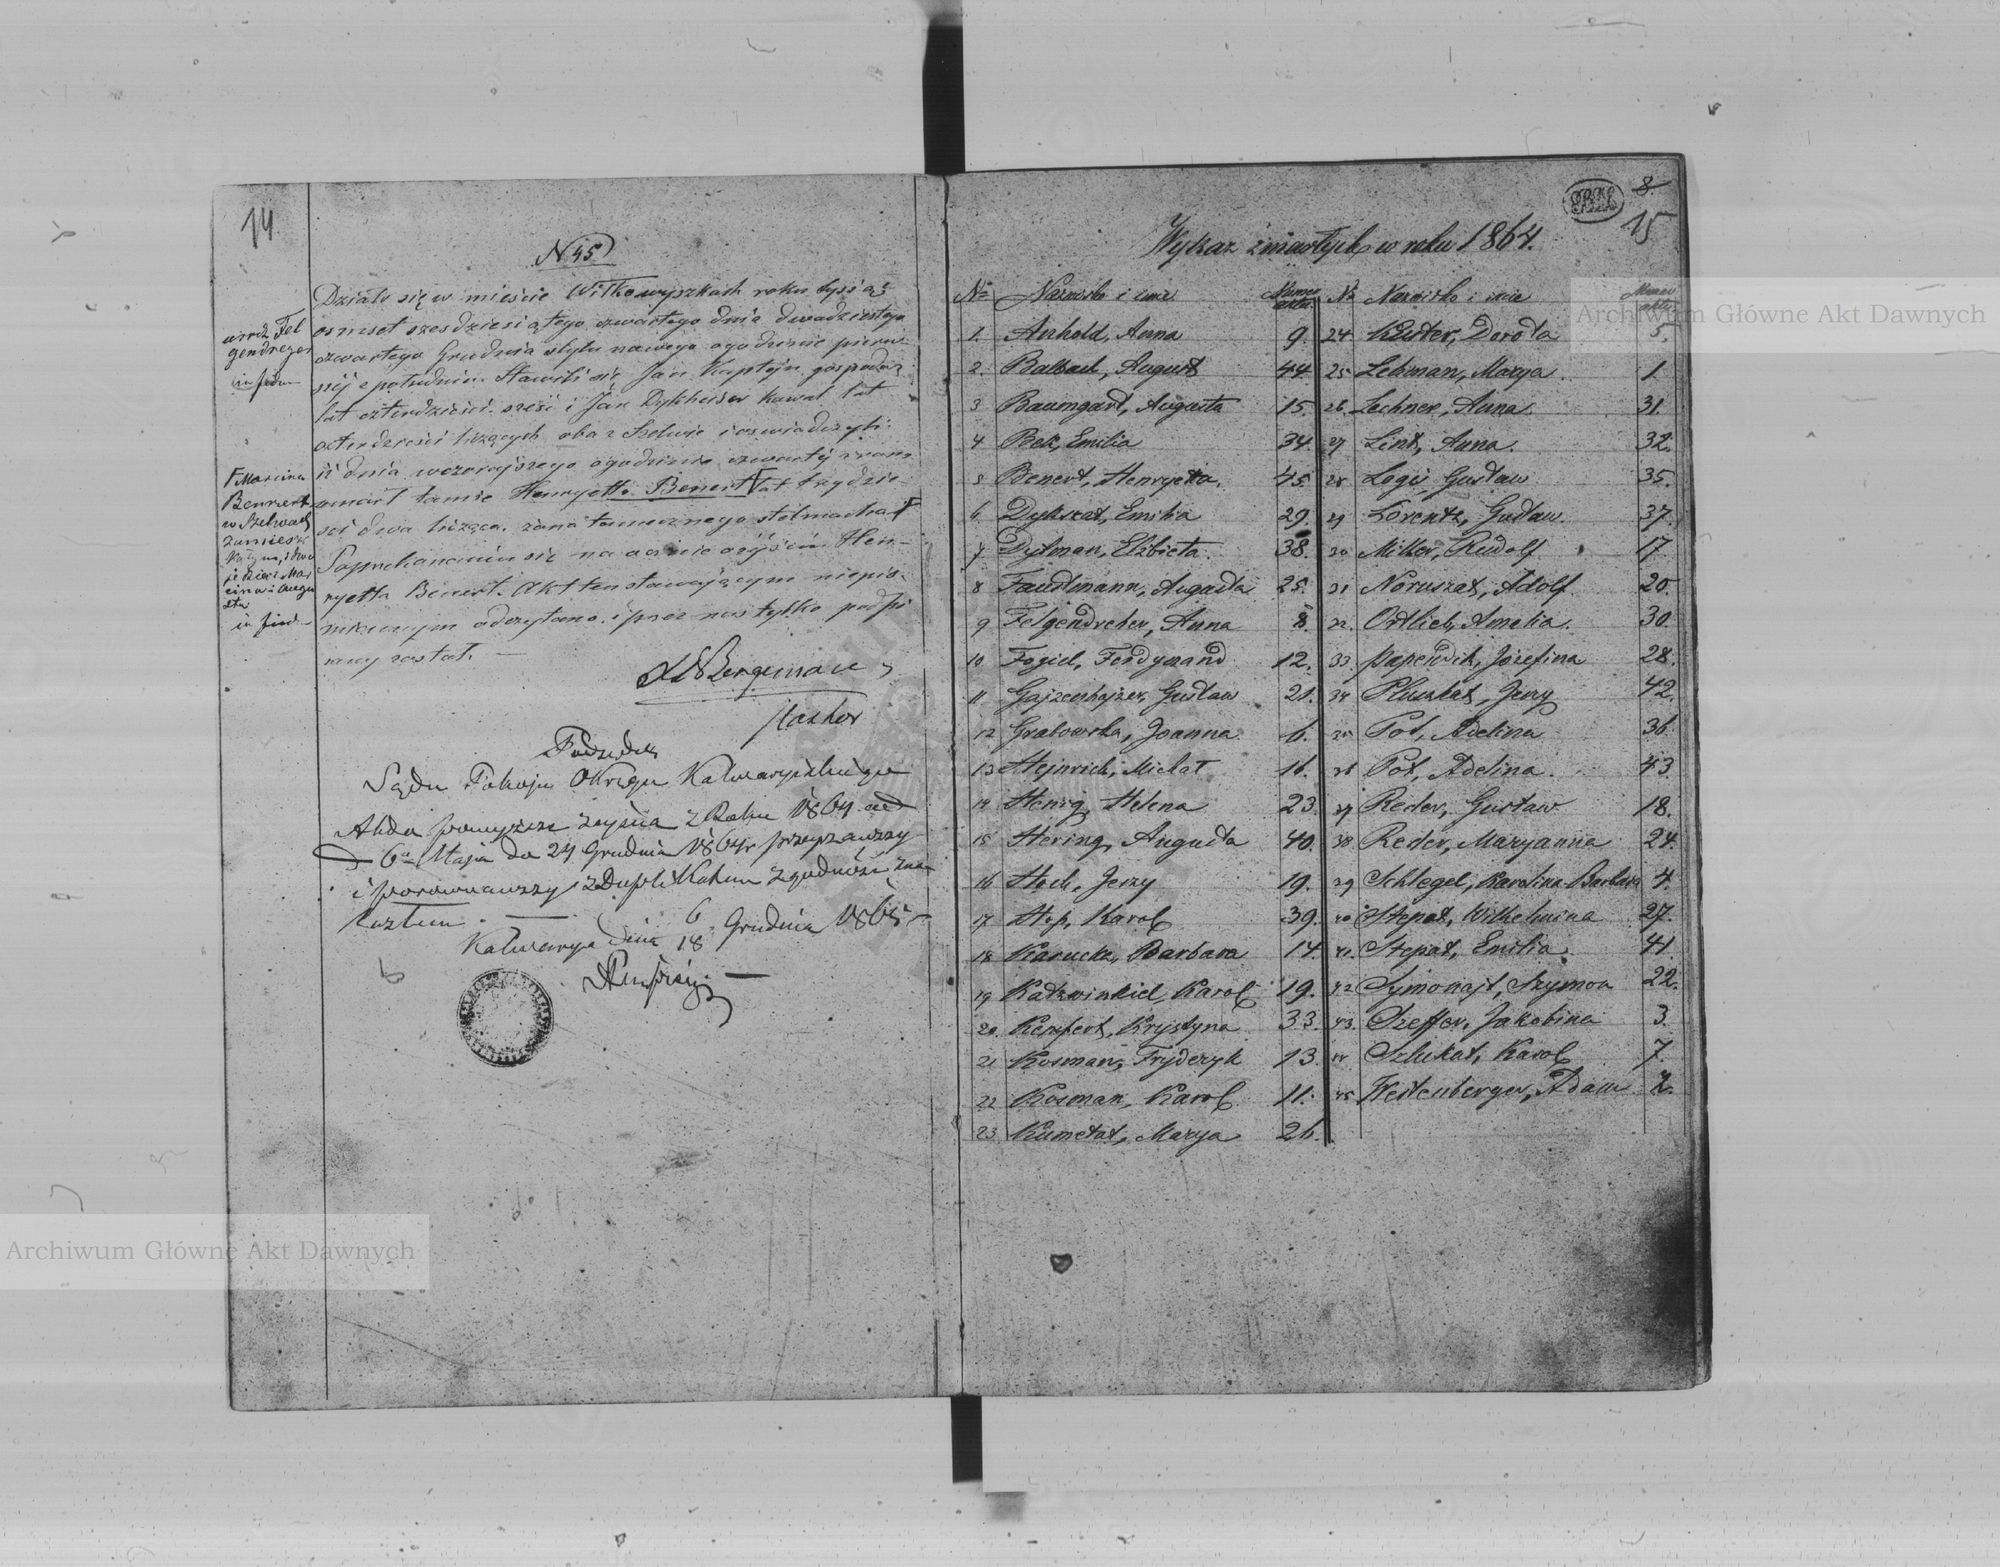 14
N 45
Działo się w mieście Wiłkowyszkach roku tysiąc
osmset szesdziesiątego czwartego dnia dwudziestego
czwartego Grudnia stylu nowego o godzinie pierw-
szej z południa. Stawili się Jan Kaptejn gospodarz
lat czterdzieści sześć i Jan Dykheiser kowal lat
czterdzieści liczących oba z Szelwie i oswiadczyli
iż dnia wczorajszego o godzinie czwartej z rana
umarł tamże Henryetta Benert lat trzydzie-
ści dwa licząca. żona tamecznego stelmacha
Po przekonaniu się naocznie o zejściu Hen-
ryetta Benert. Akt ten stawającym niepis-
miennym odczytano, i przez nas tylko podpi
sany został. —
urodz. Fel
gendreger
in fidem
Marcina
Bennert
w Szelwach
zamiesz
in fidem
Bergmann
Pastor
Podsędek
Sądu Pokoju Okręgu Kalwaryjskiego
Akta powyższe zejścia z Roku 1864 od
6go Maja do 24 Grudnia 1864r przejrzawszy
i porównawszy z Duplikatem zgodność zna
Kalwarya dnia 6/18 Grudnia 1865 r
8.
15
Wykaz zmarłych w roku 1864.
No Nazwisko i imie Numer aktu No Nazwisko i imie Numer aktu
1. Anhold, Anna 9. 24 Kuster, Dorota 5.
2. Balbach, August 44. 25 Lehman, Marya 1.
3 Baumgart, Augusta 15. 26. Lechner, Anna. 31.
4 Bek, Emilia 34. 27 Lint, Anna. 32.
5 Benert, Henryetta. 45. 28 Logi Gustaw 35.
6. Dykszat, Emilia 29. 29 Lorentz, Gustaw. 37.
7 Dylman, Elżbieta. 38. 30 Miller, Rudolf 17.
8 Faustmann, Augusta 25. 31 Noruszat, Adolf 20.
9 Felgendreher, Anna 8. 32. Ortlieb, Amelia. 30.
10 Fogiel, Ferdynand 12. 33. Papendik, Józefina 28.
11 Gajzenhajzer, Gustaw 21. 34 Pluszkat, Jerzy 42.
12 Grabowska, Joanna 6. 35 Pot, Adelina 36.
13 Hejnrich, Michał 16. 36 Pot, Adelina. 43.
14 Henig, Helena 23. 37 Reder, Gustaw 18.
15 Hering, Augusta 40. 38 Reder, Maryanna 24.
16 Hoch, Jerzy 19. 39 Schlegel, Karolina Barbara 4.
17 Hop, Karol 39. 40 Stepat, Wilhelmina 27.
18 Karucka, Barbara 14. 41. Stepat, Emilia. 41.
19 Katzwinkiel, Karol 19. 42 Symonajt, Szymon 22.
20. Kempfert, Krystyna 33. 43. Szeffer, Jakobina 3.
21 Kosman, Fryderyk 13. 44 Szlukat, Karol 7.
22 Kosman, Karol 11. 45 Weitenberger, Adam 2.
23. Kumetat, Marya 26.
Archiwum Główne Akt Dawnych
Archiwum Główne Akt Dawnych